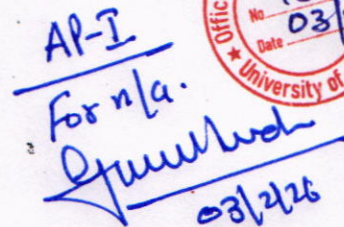 AP-I
For n/a.
03/2/26
Offic
No
Date 03/
★ University of